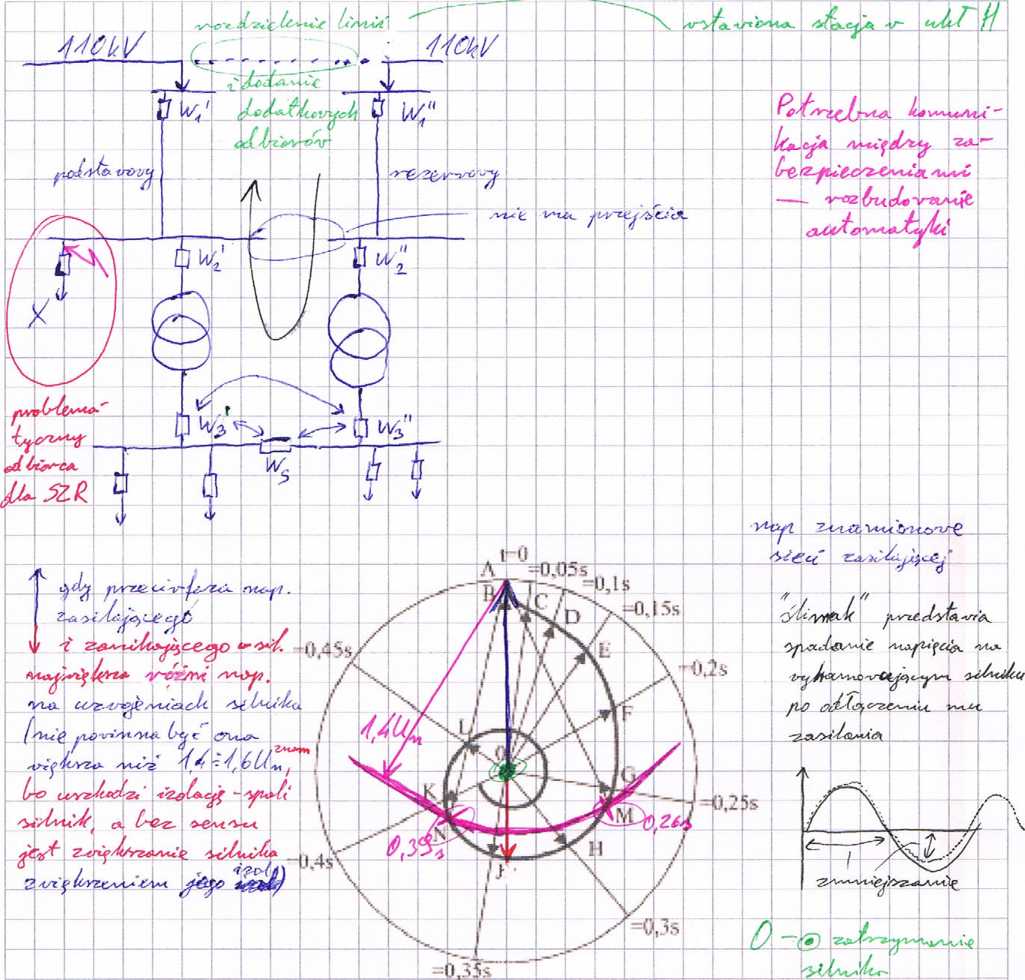 rozdzielenie linii
wstawiona stacja w ukł H
110kV
110kV
i dodanie
dodatkowych
odbiorów
W₁'
W₁"
Potrzebna komuni-
kacja między za-
bezpieczeniami
— rozbudowanie
automatyki
podstawowy
rezerwowy
nie ma przejścia
W₂'
W₂"
X
problema-
tyczny
odbiorca
dla SZR
W₃'
W₃"
Wₛ
nap znamionowe
sieci zasilającej
gdy przeciwfaza nap.
zasilającego
i zanikającego w sil.
największa różni nap.
na uzwojeniach silnika
(nie powinna być ona
większa niż 1,4÷1,6Uₙ, znam
bo uszkodzi izolację - spali
silnik, a bez sensu
jest zwiększanie silnika
zwiększeniem jego izol)
t=0
A
=0,05s
=0,1s
B
C
D
=0,15s
E
=0,45s
=0,2s
F
1,4Uₙ
U
O
G
=0,25s
K
M
0,26s
N
0,39s
L
H
=0,4s
F'
=0,3s
=0,35s
"ślimak" przedstawia
spadanie napięcia na
wyhamowującym silniku
po odłączeniu mu
zasilania
zmniejszanie
O - zatrzymanie
silnika